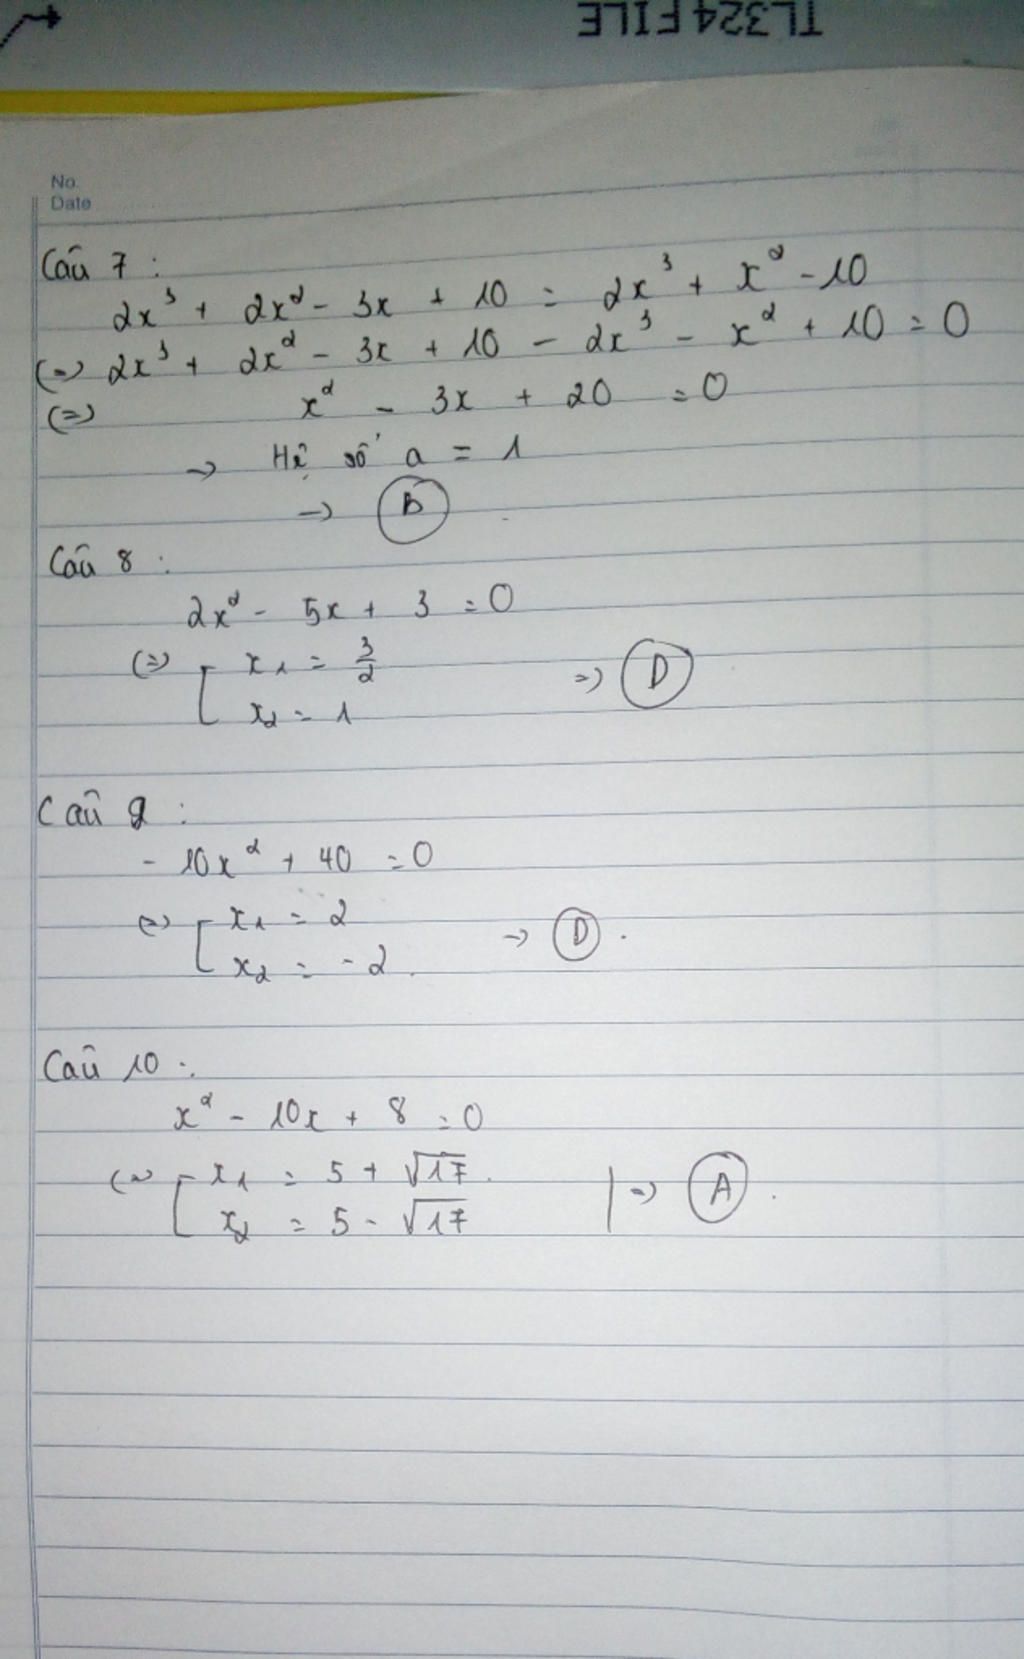 TL324 FILE
No.
Date
Câu 7 :
2x³ + 2x² - 3x + 10 = 2x³ + x² - 10
(=) 2x³ + 2x² - 3x + 10 - 2x³ - x² + 10 = 0
(=) x² - 3x + 20 = 0
→ Hệ số a = 1
→ B
Câu 8 :
2x² - 5x + 3 = 0
(=) [ x₁ = 3/2
x₂ = 1
=) D
Câu 9 :
- 10x² + 40 = 0
(=) [ x₁ = 2
x₂ = -2.
→ D.
Câu 10 :
x² - 10x + 8 = 0
(=) [ x₁ = 5 + √17.
x₂ = 5 - √17
| =) A.